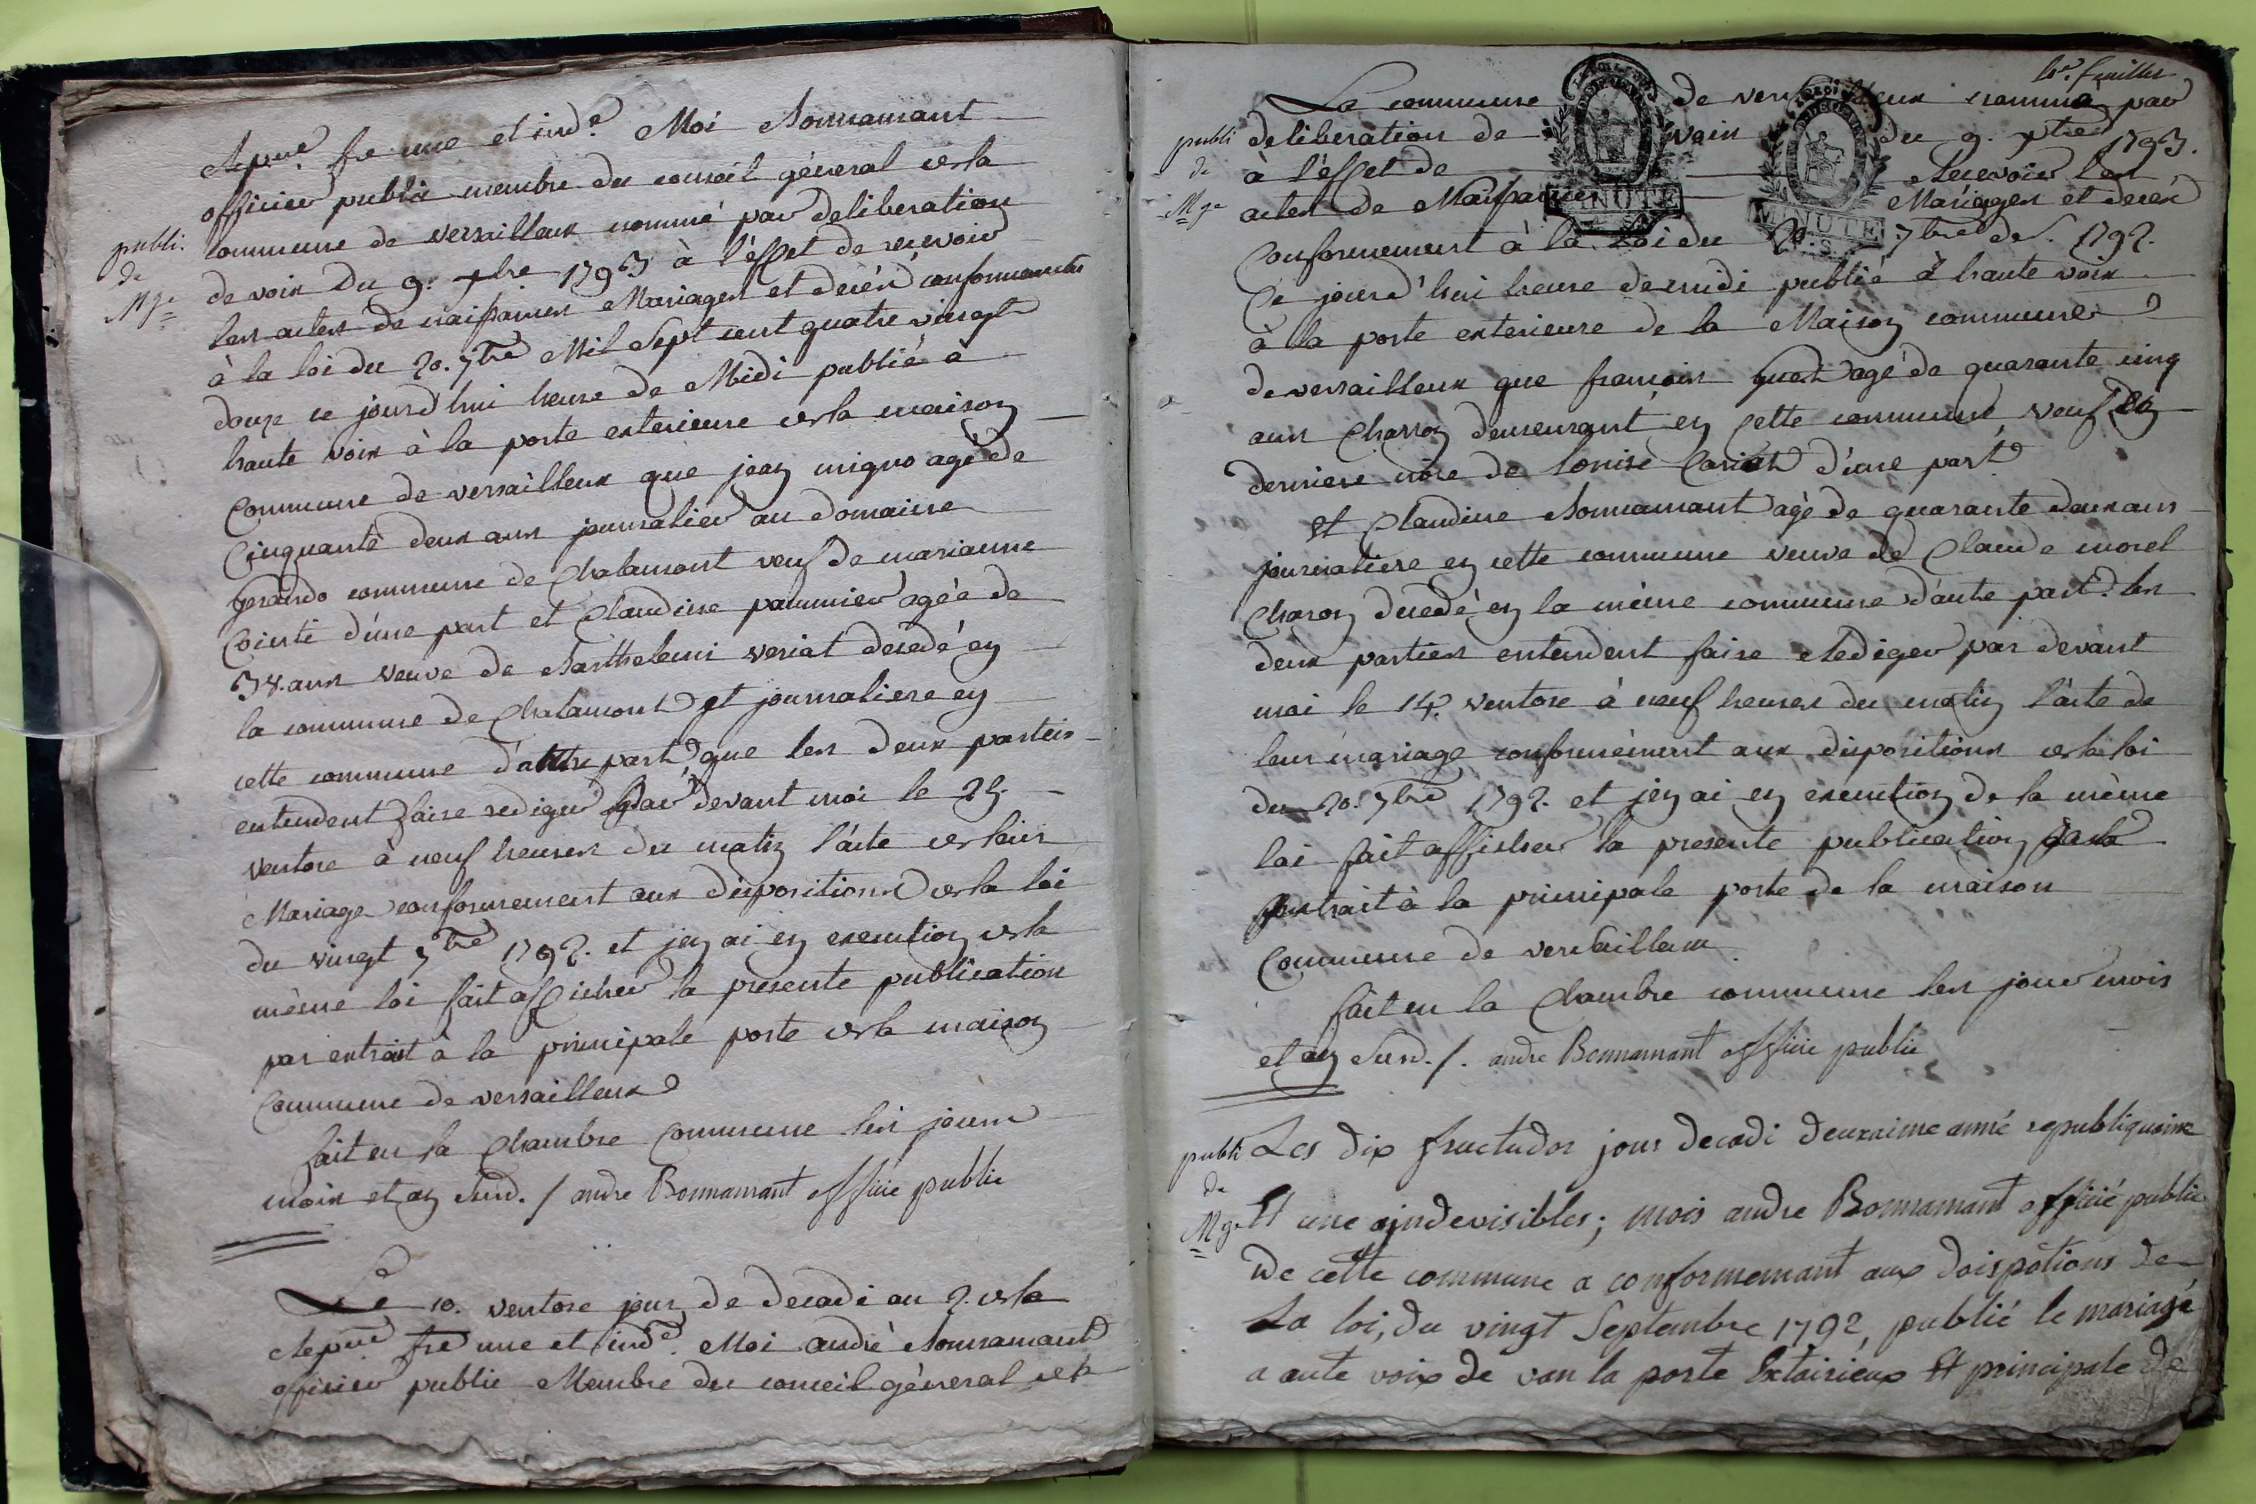 Repue. fse une et inde. Moi Bonnamant
officier public membre du conseil géneral de la
commune de versailleux nommé par deliberation
publi.
de
Mge
de voix Du 9. xbre 1793 à l'éffet de recevoir
les actes de naissances Mariages et decés conformement
à la loi du 20. 7bre Mil Sept cent quatre vingt
douze ce jourd'hui heure de Midi publié à
haute voix à la porte exterieure de la maison
Commune de versailleux que jean migno agé de
Cinquante deux ans journalier au domaine
commune de Chalamont veuf de marianne
d'une part et Claudine paumier agée de
38. ans veuve de Barthelemi veriat decedé en
la commune de Chalamont et journaliere en
cette commune d'autre part que les deux parteis
entendent faire rediger par devant moi le
ventose à neuf heures du matin l'acte de leur
Mariage conformement aux dispositions de la loi
du vingt 7bre 1792. et jen ai en execution de la
même loi fait afficher la presente publication
par extrait à la principale porte de la maison
Commune de versailleux
fait en la Chambre Commune les jours
mois et an Susd. / andre Bonnamant officie public
Le 10. ventose jour de decadi an 2. de la
Repue fse une et inde. Moi andré Bonnamant
officier public Membre du conseil géneral de la
feuillet
La commune de versailleux nommé par
publi
de
Mge
deliberation de voix du 9. xbre 1793.
à l'éffet de Recevoir les
actes de Naissances Mariages et decés
MINUTE
MINUTE
Conformement à la Loi du 20. 7bre de 1792.
Ce jourd'hui heure de midi publié à haute voix
à la porte exterieure de la Maison commune
de versailleux que francois agé de quarante cinq
ans Charron demeurant en Cette commune veuf en
derniere nôce de Louise d'une part
Et Claudine Bonnamant agé de quarante deux ans
journaliere en cette commune veuve de Claude morel
Charon decedé en la même commune d'aute part. les
deux parties entendent faire Rediger par devant
moi le 14. ventose à neuf heures du matin l'acte de
leur mariage conformément aux dispositions de la loi
du 20. 7bre 1792. et jen ai en execution de la même
loi fait afficher la presente publication par
extrait à la principale porte de la maison
Commune de versailleux
fait en la Chambre commune les jour mois
et an Susd. /. andre Bonnamant officie public
publi
de
Mge
Les dix fructudor jour decadi deuxaime anné republiquaine
Et une aindevisibles; mois andre Bonnamant officié public
De cette commune a conformemant aux doispôtions de
La loi, du vingt Septembre 1792, publié le mariagé
a aute voix de van la porte Extairieux Et principale de